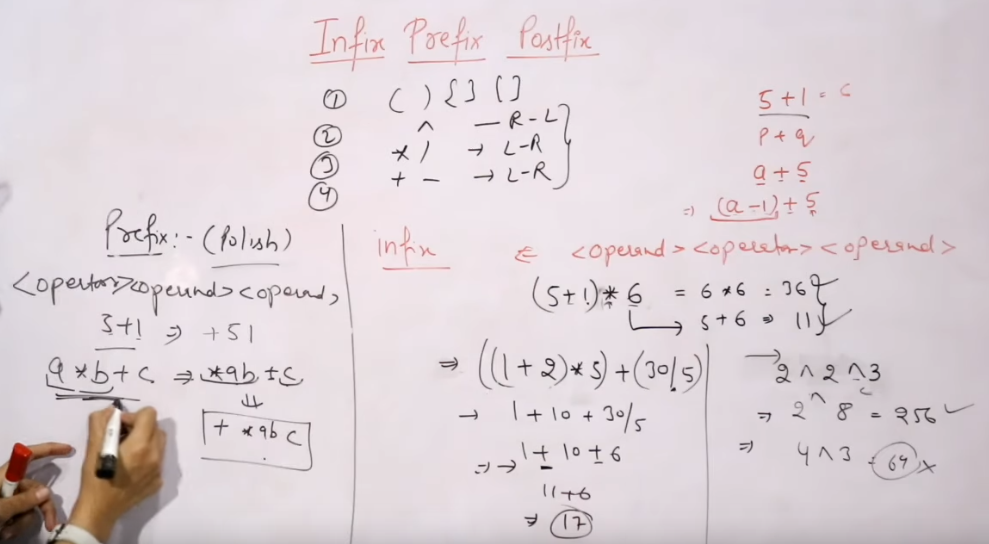 Infix Prefix Postfix
① ( ) { } [ ]
② ^ — R-L
③ * / → L-R
④ + - → L-R
5+1 = c
p+q
a+5
⇒ (a-1)+5
Prefix:- (Polish)
<opertor><operand><operand>
5+1 ⇒ +51
a*b+c ⇒ *ab+c
⇓
+*abc
infix ∈ <operand><operator><operand>
(5+1)*6 = 6*6 = 36
→ 5+6 ⇒ 11
⇒ ((1+2)*5)+(30/5)
→ 1+10+30/5
⇒→ 1+10+6
11+6
⇒ 17
→ 2^2^3
⇒ 2^8 = 256 ✓
⇒ 4^3 = 64 ×